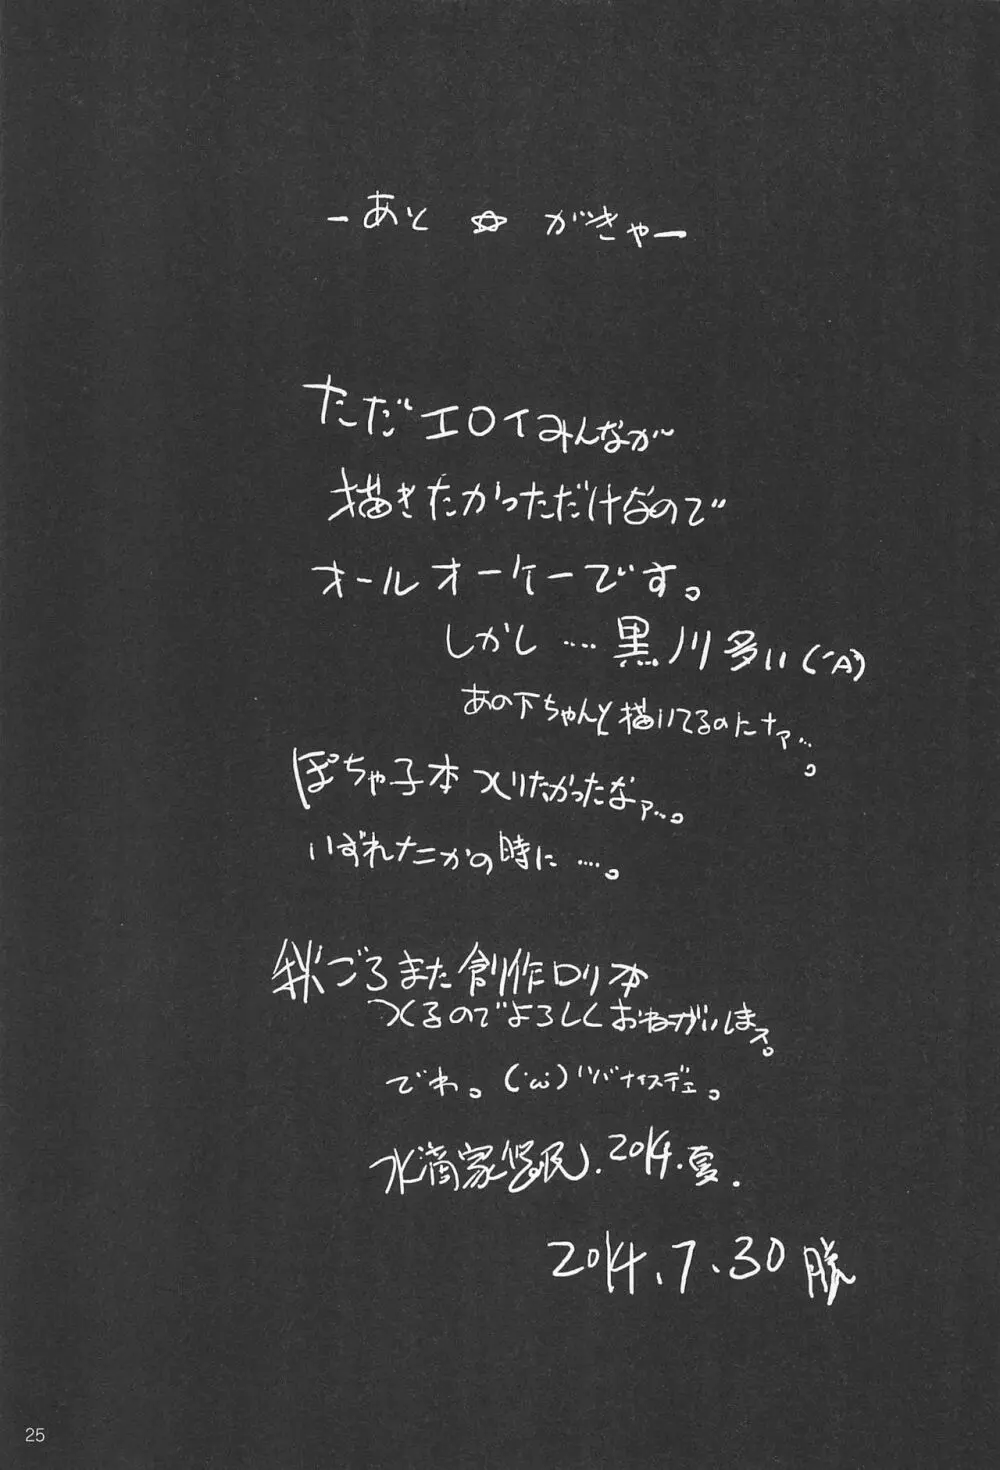 ーあと☆がきゃー
ただエロイみんなが
描きたかっただけなので
オールオーケーです。
しかし‥‥黒川多い(´A`)
あの下ちゃんと描いてるのにナァ‥‥。
ぽちゃ子本つくりたかったなァ‥‥。
いずれナニかの時に‥‥。
秋ごろまた創作ロリ本
つくるのでよろしくおねがいします。
でわ。(´ω`)ハバナイスデェ。
水滴家 2014.夏.
2014.7.30
25